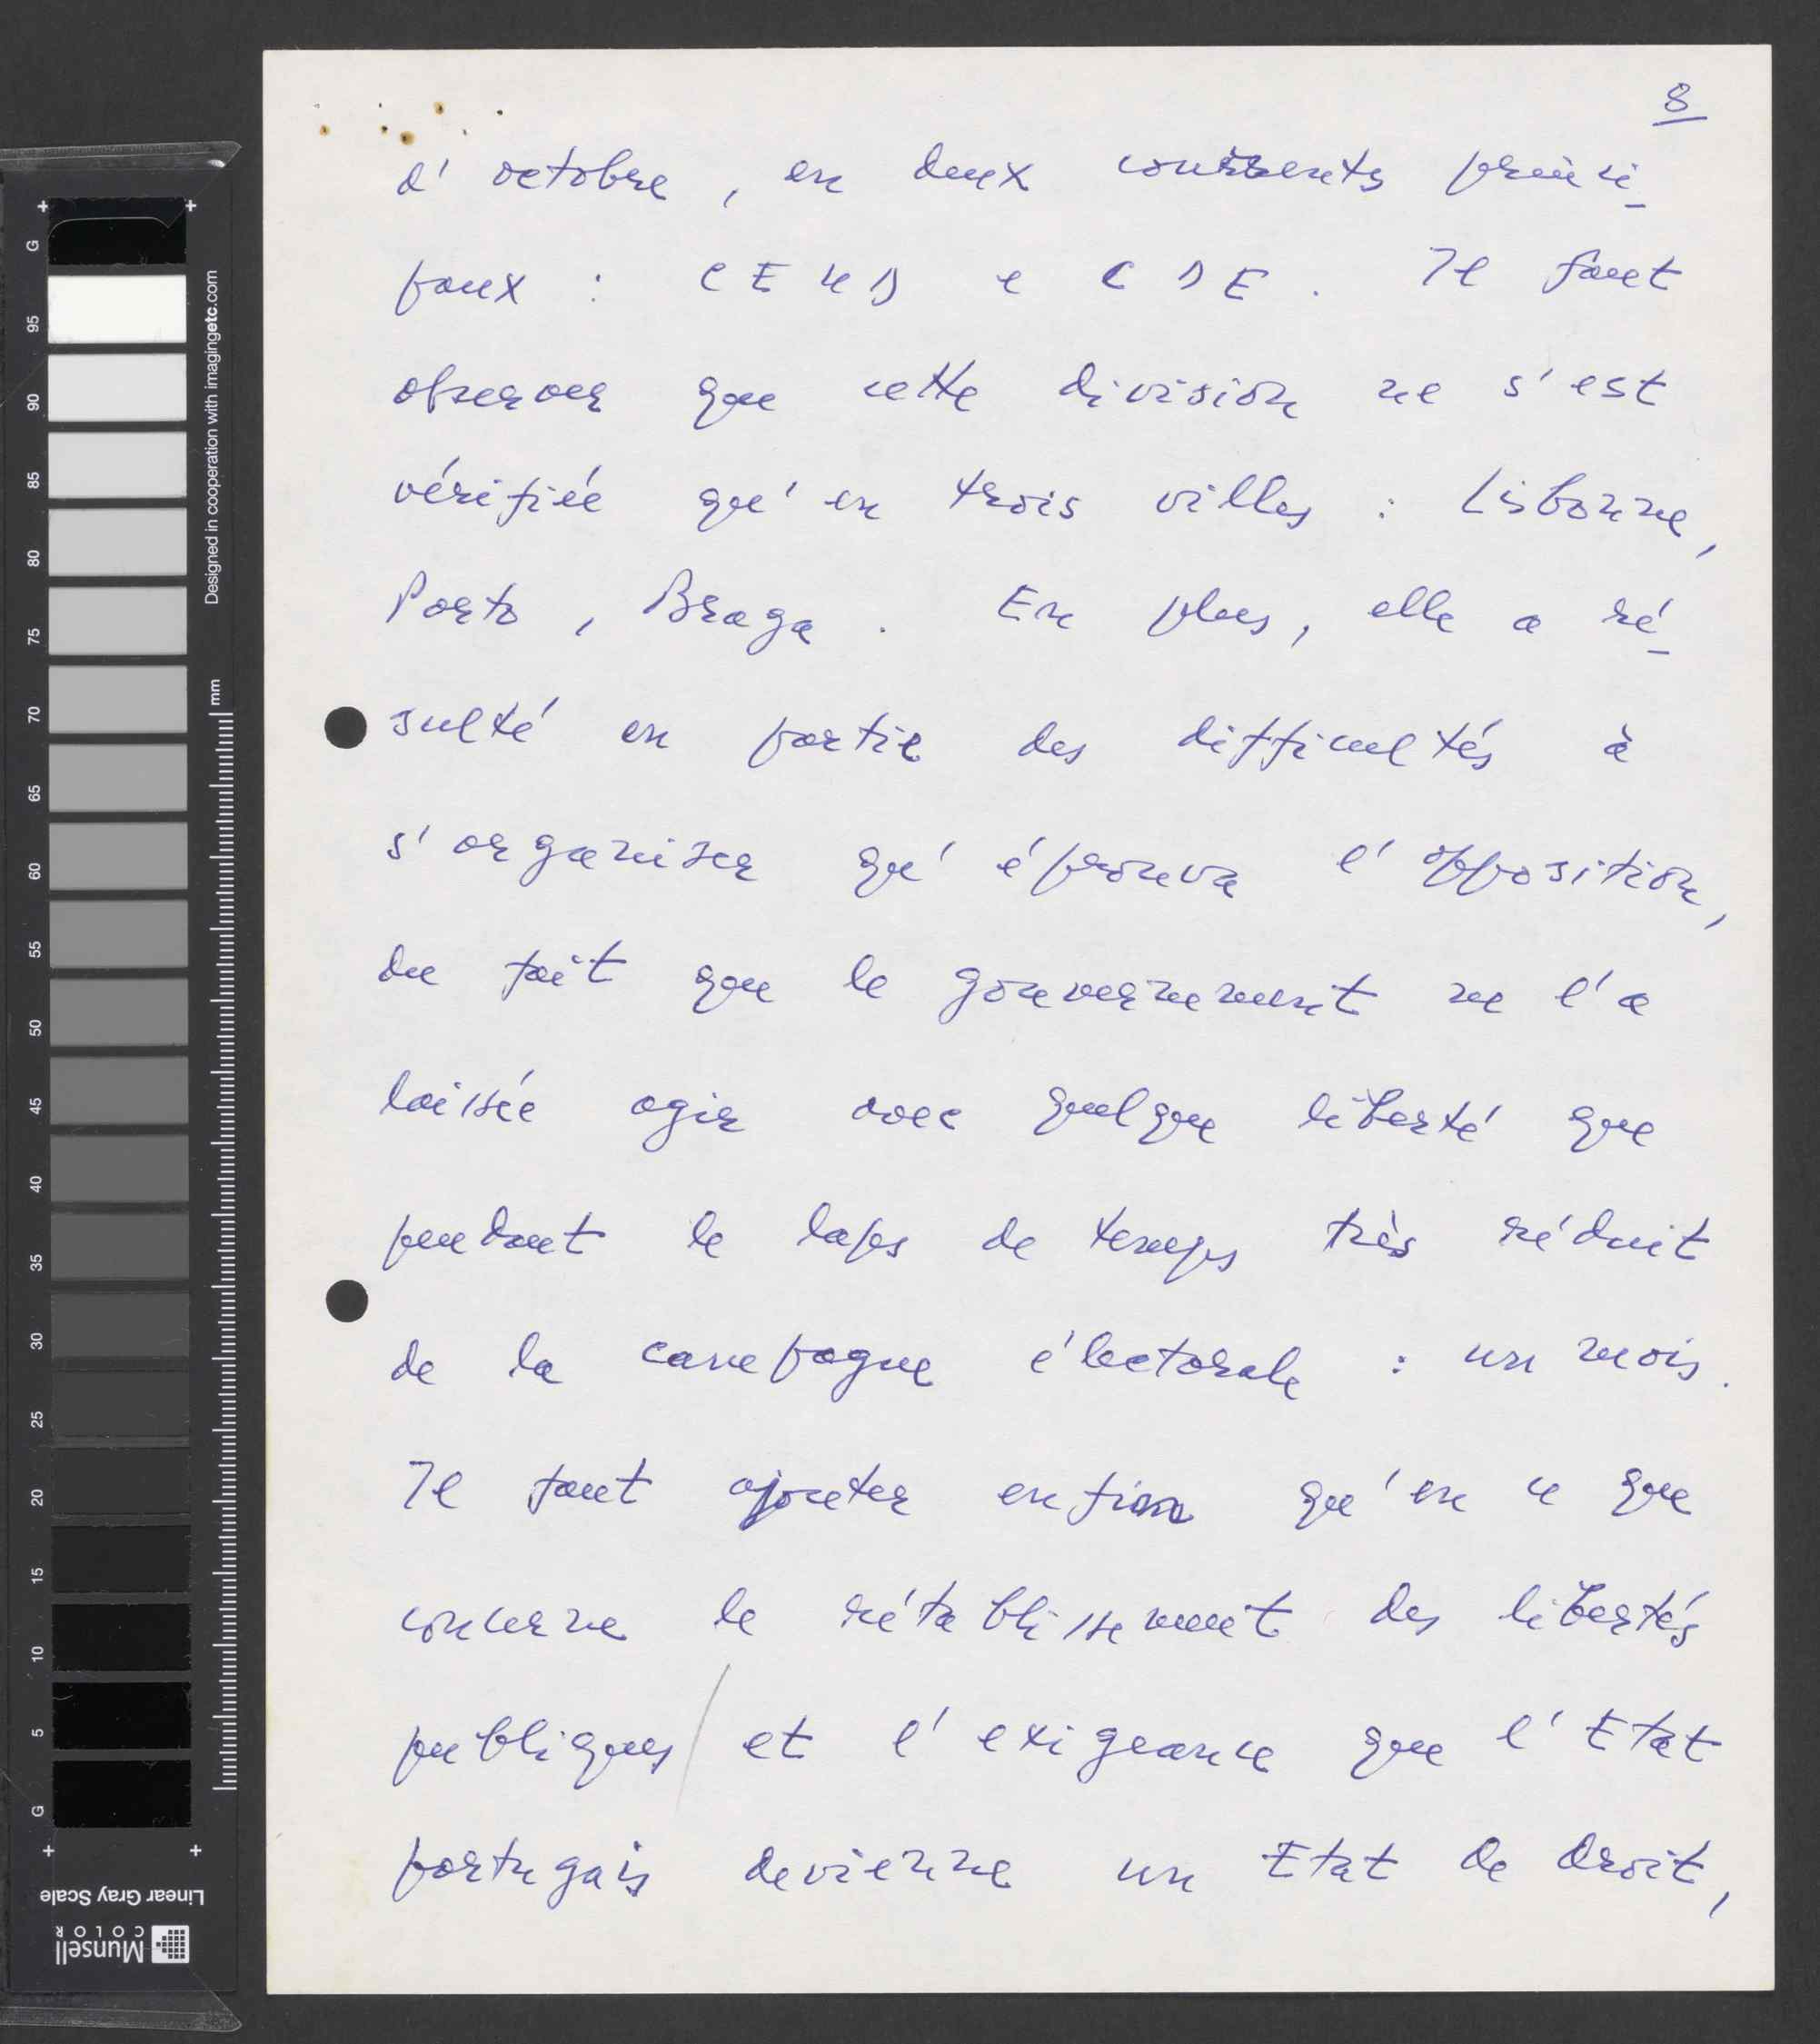 8
d'octobre, en deux courrents princi-
paux : CEUD e CDE. Il faut
observer que cette division ne s'est
vérifiée qu'en trois villes : Lisbonne,
Porto, Braga. En plus, elle a ré-
sulté en partie des difficultés à
s'organiser qu'éprouva l'opposition,
du fait que le gouvernement ne l'a
laissée agir avec quelque liberté que
pendant le laps de temps très réduit
de la campagne électorale : un mois.
Il faut ajouter enfin qu'en ce que
concerne le rétablissement des libertés
publiques / et l'exigeance que l'Etat
portugais devienne un Etat de droit,
G
95
90
85
80
75
70
65
60
55
50
45
40
35
30
25
20
15
10
5
G
Designed in cooperation with imagingetc.com
mm
Linear Gray Scale
Munsell
COLOR